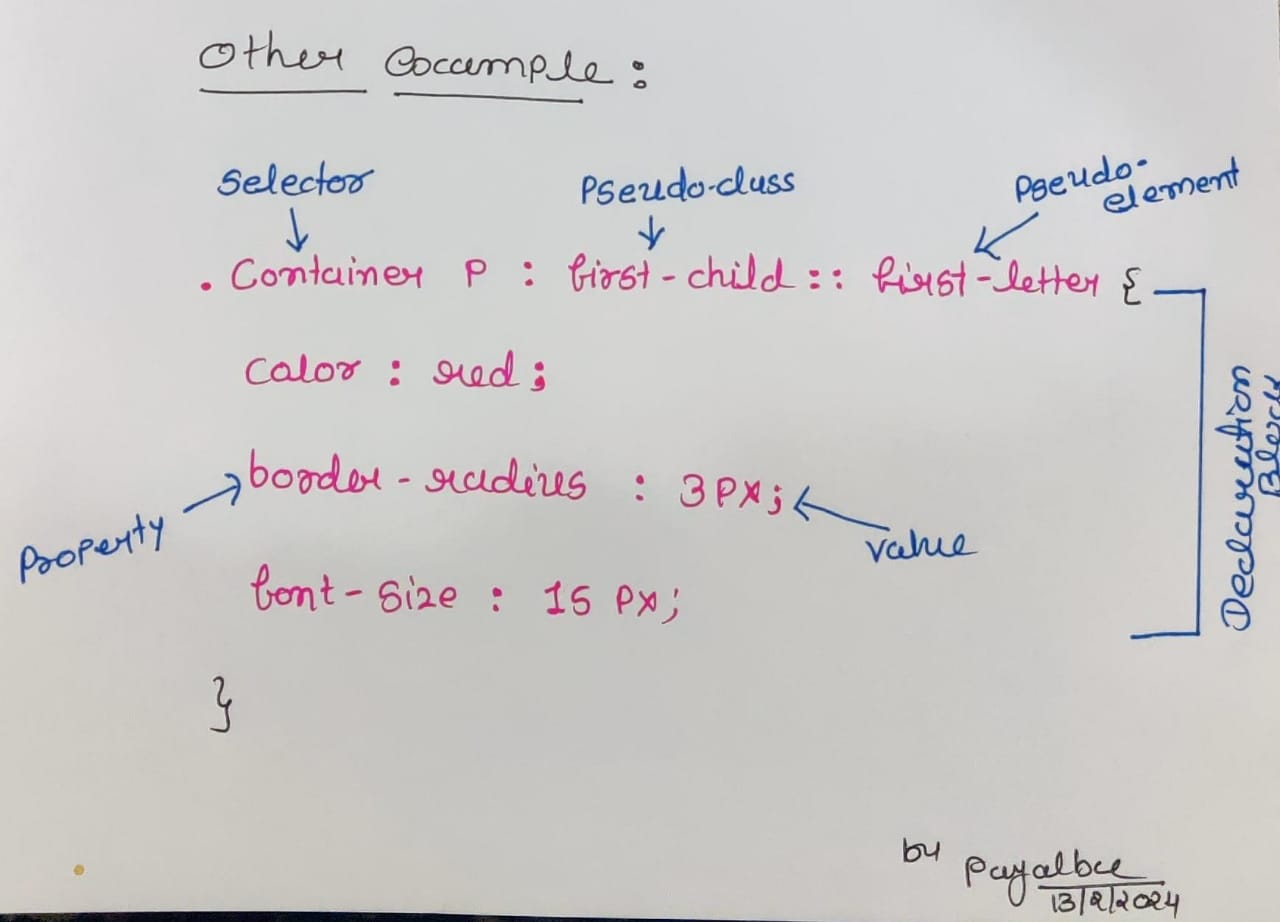 Other Example :
Selector
Pseudo-class
Pseudo-
element
. Container P : first-child :: first-letter {
Color : red ;
Property
border-radius : 3PX;
value
font-size : 15 PX;
}
Declaration
Block
by Payalbce
13/2/2024